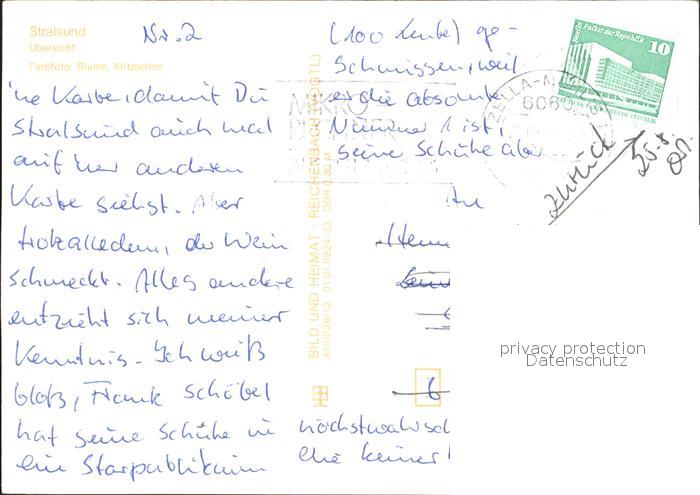 Stralsund
Übersicht
Farbfoto: Blume, Klitzschen
Nr. 2
'ne Karte, damit Du
Stralsund auch mal
auf 'ner anderen
Karte siehst. Aber
trotzalledem, der Wein
schmeckt. Alles andere
entzieht sich meiner
Kenntnis. Ich weiß
bloß, Frank Schöbel
hat seine Schuhe in
ein Starpublikum
(100 Leute) ge-
schmissen, weil
er die absolute
Nummer 1 ist,
seine Schuhe aber
höchstwahrsch
ehe keiner
BILD UND HEIMAT · REICHENBACH (VOGTL)
A1/III/26/13 01 01 0924/32 DDR 0,20 M
Berlin, Palast der Republik
10
ZELLA-M
6060
MIKRO
zurück
25.8.
An
Herrn
6
privacy protection
Datenschutz